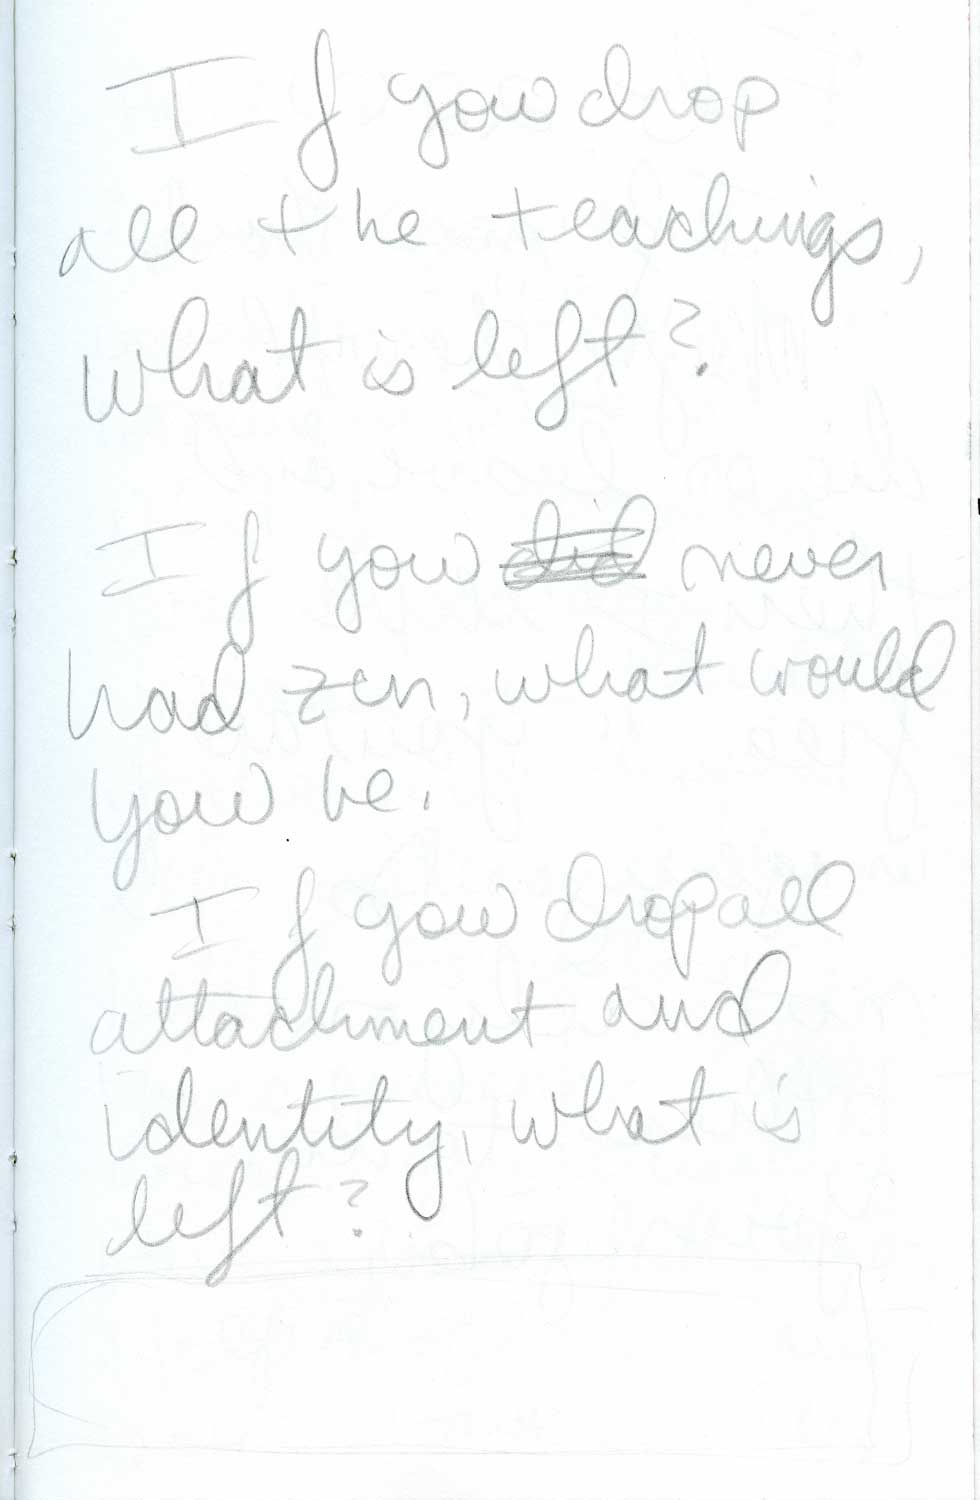 If you drop
all the teachings,
what is left?
If you did never
had zen, what would
you be.
If you drop all
attachment and
identity, what is
left?